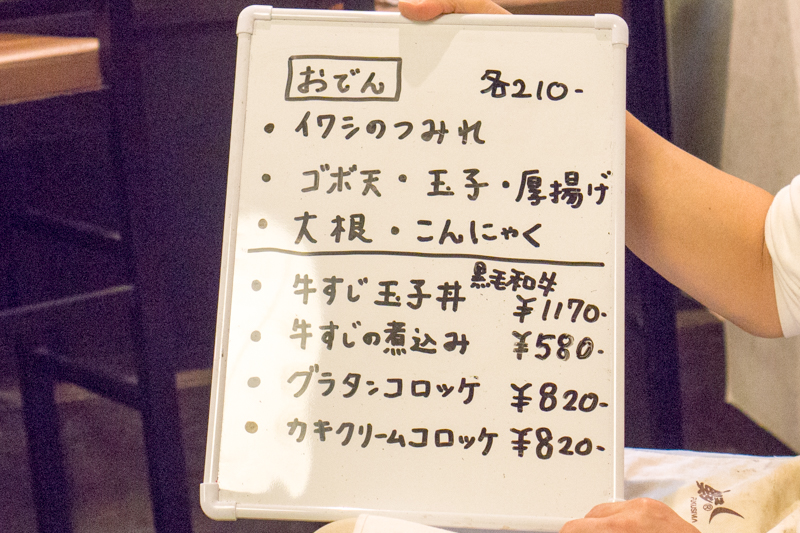 おでん 各210-
・イワシのつみれ
・ゴボ天・玉子・厚揚げ
・大根・こんにゃく
・牛すじ玉子丼 黒毛和牛 ¥1170-
・牛すじの煮込み ¥580-
・グラタンコロッケ ¥820-
・カキクリームコロッケ ¥820-